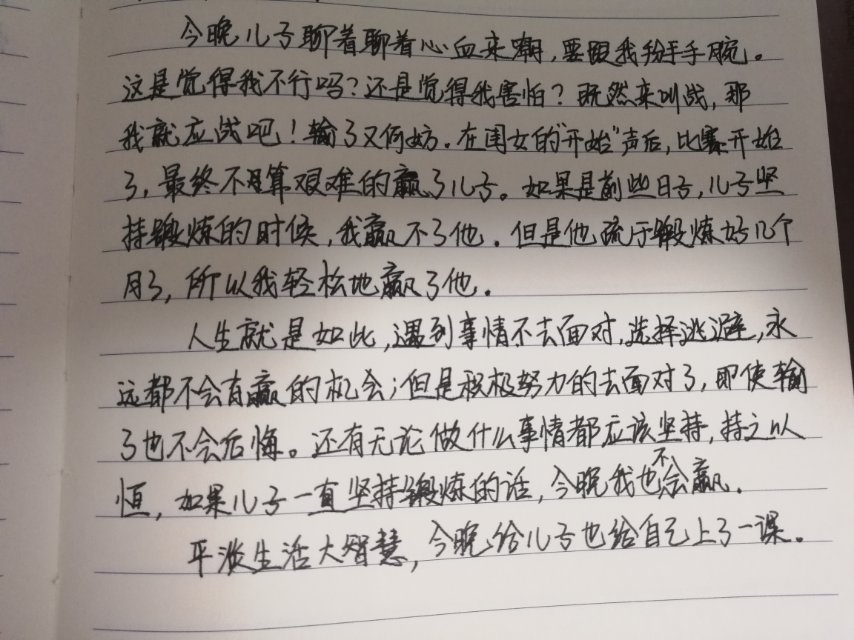 今晚儿子聊着聊着心血来潮，要跟我扮手手腕。
这是觉得我不行吗？还是觉得我害怕？既然来叫战，那
我就应战吧！输了又何妨。在闺女的"开始"声后，比赛开始
了，最终不是算艰难的赢了儿子。如果是前些日子，儿子坚
持锻炼的时候，我赢不了他。但是他疏于锻炼好几个
月了，所以我轻松地赢了他。
人生就是如此，遇到事情不去面对，选择逃避，永
远都不会有赢的机会；但是积极努力的去面对了，即使输
了也不会后悔。还有无论做什么事情都应该坚持，持之以
恒，如果儿子一直坚持锻炼的话，今晚我也不会赢。
平淡生活大智慧，今晚给儿子也给自己上了一课。